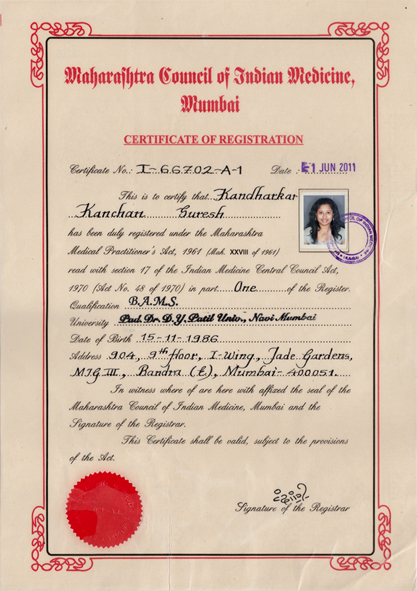 Maharashtra Council of Indian Medicine,
Mumbai
CERTIFICATE OF REGISTRATION
Certificate No.: I-66702-A-1 Date : 1 JUN 2011
This is to certify that Kandharkar
Kanchan Suresh
has been duly registered under the Maharashtra
Medical Practitioner's Act, 1961 (Mah. XXVIII of 1961)
read with section 17 of the Indian Medicine Central Council Act,
1970 (Act No. 48 of 1970) in part One of the Register.
Qualification B.A.M.S.
University Pad. Dr. D.Y. Patil Univ., Navi Mumbai
Date of Birth 15-11-1986
Address 904, 9th floor, I-Wing, Jade Gardens,
MIG III, Bandra (E), Mumbai-400051.
In witness where of are here with affixed the seal of the
Maharashtra Council of Indian Medicine, Mumbai and the
Signature of the Registrar.
This Certificate shall be valid, subject to the provisions
of the Act.
Signature of the Registrar